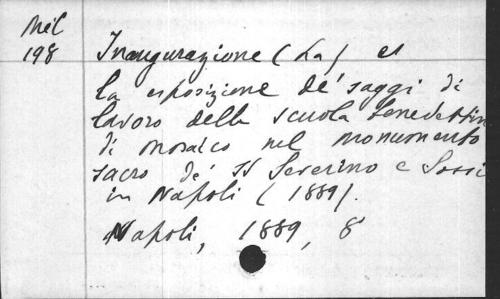 Mél
198
Inaugurazione (La) et
la esposizione de' saggi di
lavoro della scuola benedettin
di mosaico nel monumento
sacro de' SS Severino e Sossi
in Napoli (1889).
Napoli, 1889, 8°